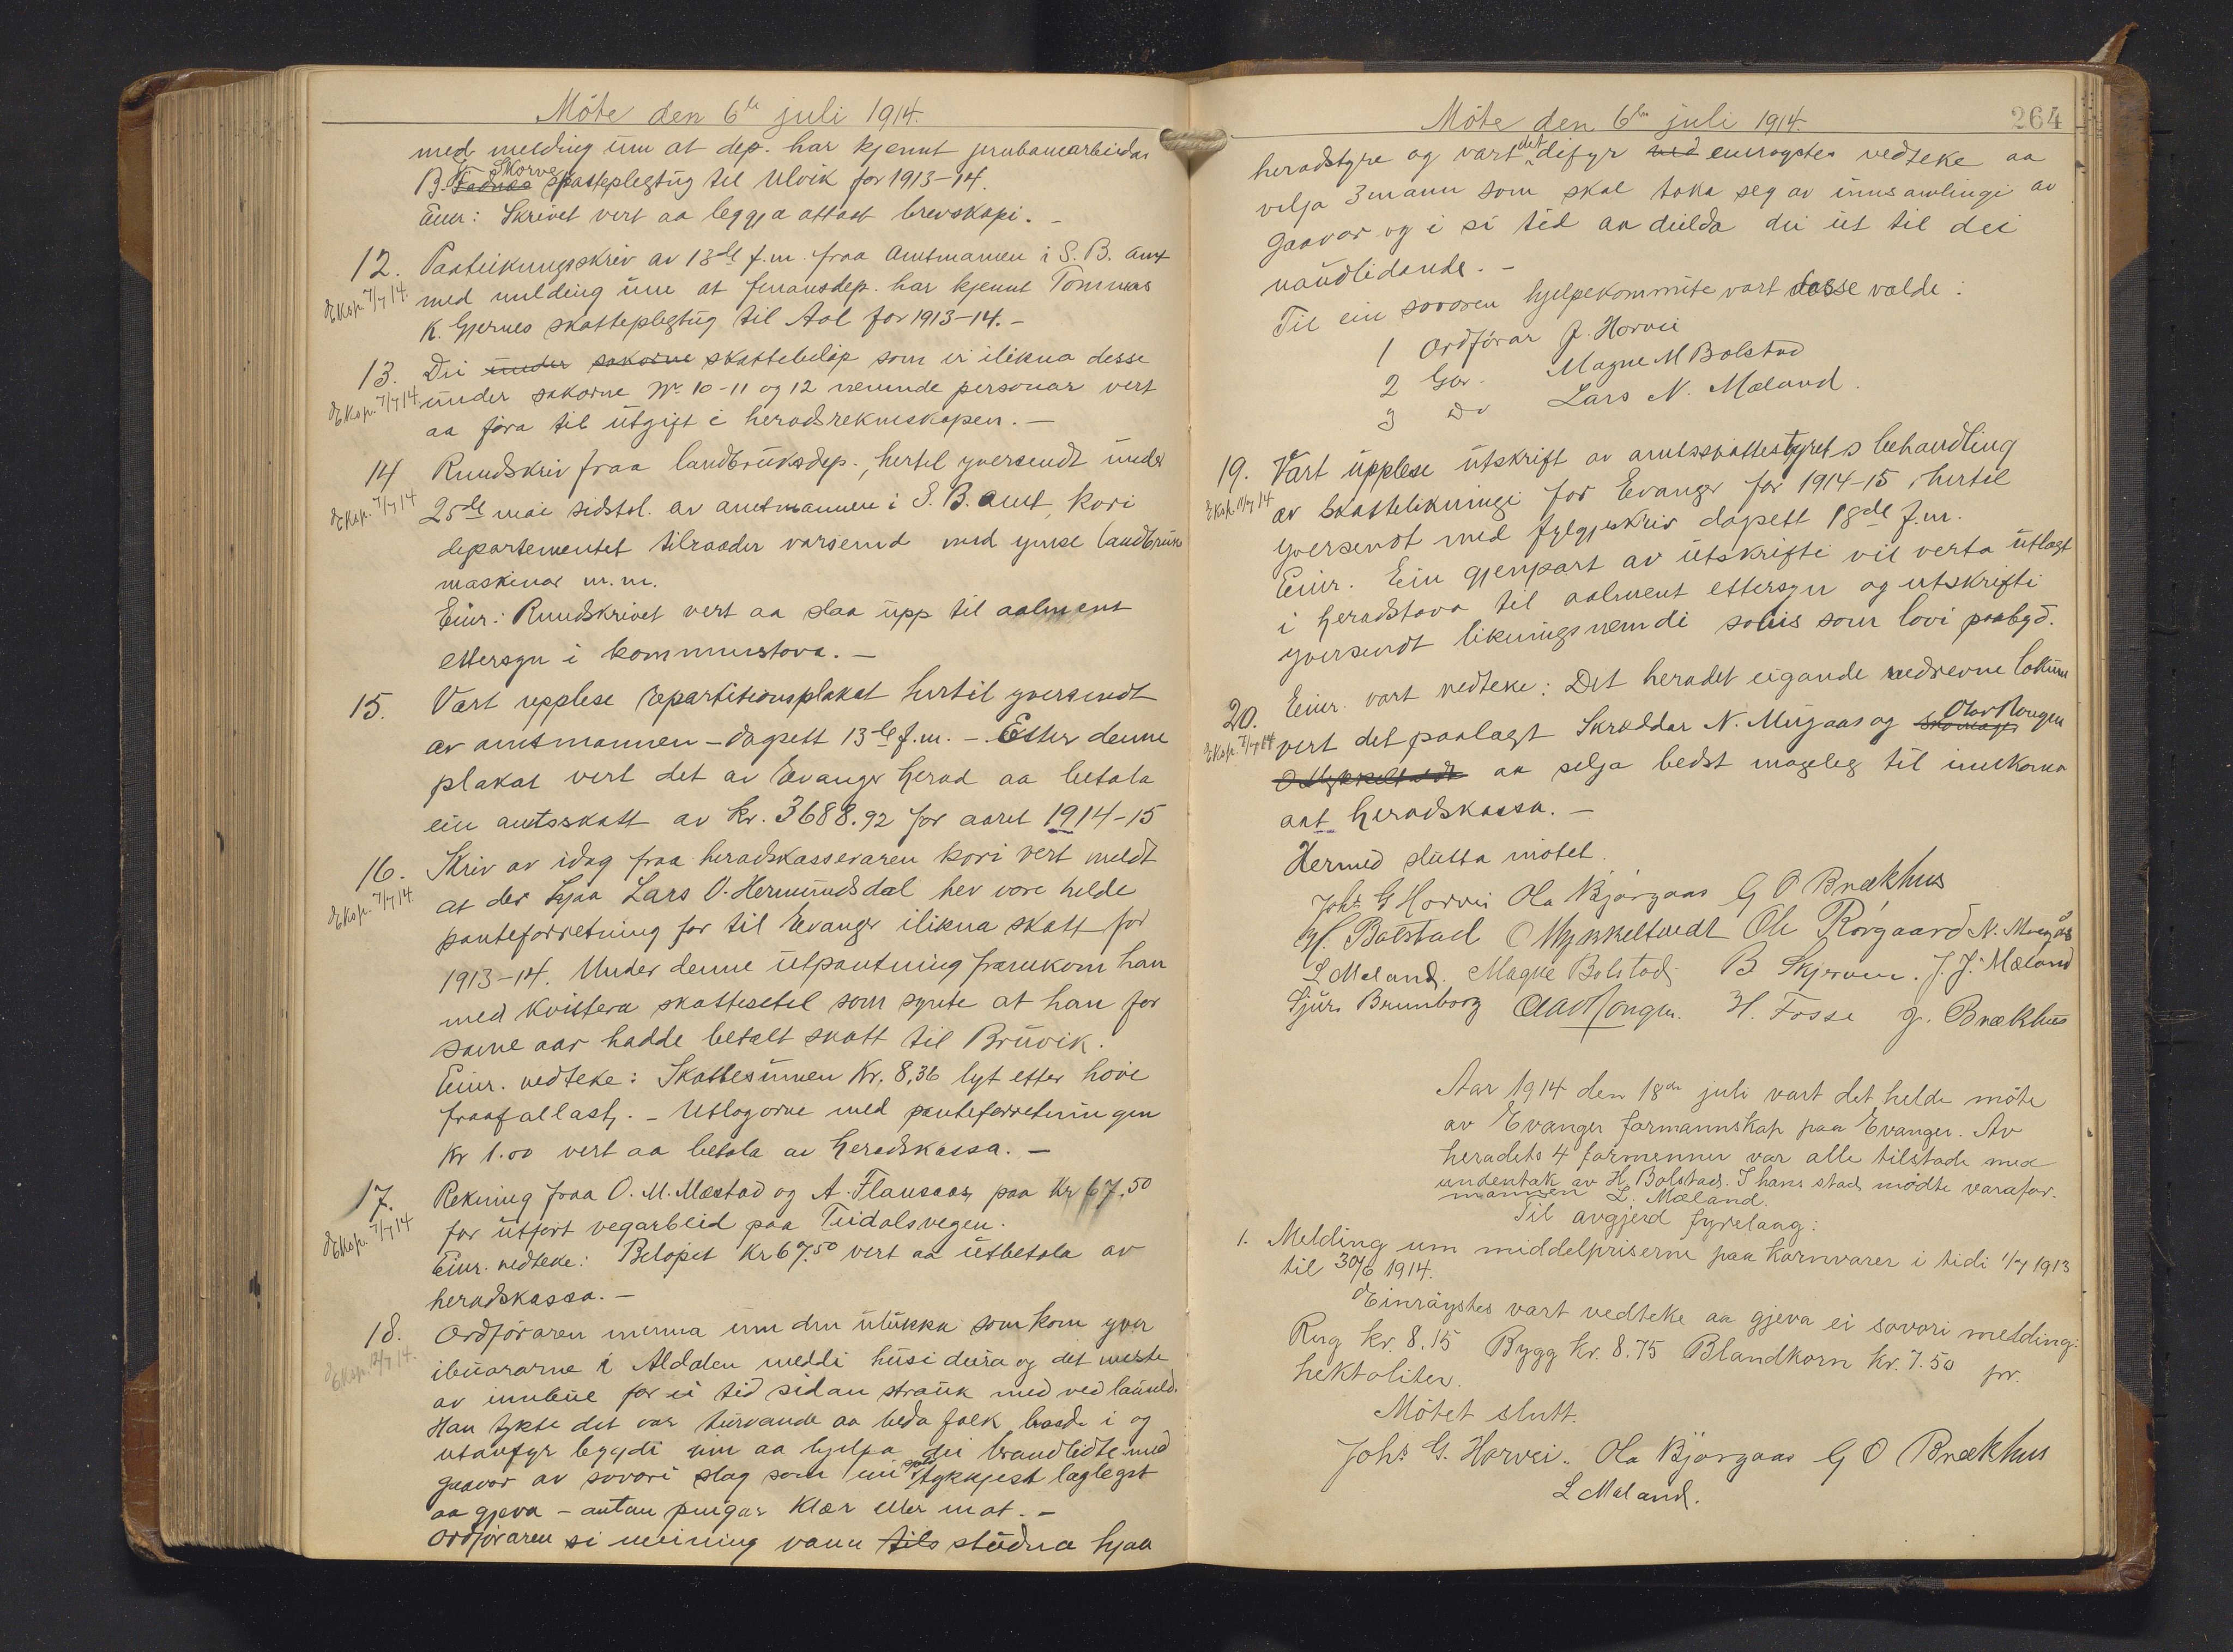 Möte den 6te juli 1914.
med melding um at dep. har kjennt jernbanearbeidar
B. Fadnes Skorve skatteplegtug til Ulvik for 1913-14.
Einr: Skrivet vert aa leggja attaat brevskapi. -
12. Paateikningsskriv av 18de f.m. fraa Amtmannen i S. B. amt
Eksp. 7/7 14. med melding um at finansdep. har kjennt Tommas
K. Gjernes skatteplegtug til Aal for 1913-14. -
13. Dei under sakorne skattebeløp som er ilikna desse
Eksp. 7/7 14 under sakorne No 10-11 og 12 nemnde personar vert
aa föra til utgift i heradsrekneskapen. -
14 Rundskriv fraa landbruksdep., hertil yversendt under
Eksp. 7/7 14 25de mai sidstl. av amtmannen i S. B. amt, kori
departementet tilraader varsemd med ymse landbruks
maskinar m.m.
Einr: Rundskrivet vert aa slaa upp til aalment
ettersyn i kommunstova. -
15. Vart upplese repartitionsplakat hertil yversendt
av amtmannen - dagsett 13de f.m. - Etter denne
plakat vert det av Evanger herad aa betala
ein amtsskatt av kr. 3688.92 for aaret 1914-15
16. Skriv av idag fraa heradskasseraren kori vert meldt
Eksp. 7/7 14. at der hjaa Lars O. Hermundsdal hev vore helde
panteforretning for til Evanger ilikna skatt for
1913-14. Under denne utpantning framkom han
med kvitera skattesetel som synte at han for
same aar hadde betalt skatt til Bruvik.
Einr. vedteke: Skattesumen Kr. 8,36 lyt etter høve
fraafallast. - Utlogorne med panteforretningen
Kr 1.00 vert aa betala av heradskassa. -
17. Rekning fraa O. M. Mæstad og A. Flausaas paa Kr 67,50
Eksp. 7/7 14 for utført vegarbeid paa Teidalsvegen.
Einr. vedteke: Beløpet Kr 67.50 vert aa utbetala av
heradskassa. -
18. Ordføraren minna um den ulukka som kom yver
Eksp. 12/7 14. ibuararne i Aldalen meddi husi deira og det meste
av innbue for ei tid sidan strauk med ved laueld.
Han tykte det var turvande aa beda folk baade i og
utanfyr bygdi um aa hjelpa dei brandlidte med
gaavor av sovori slag som ein sjølv tykkjest laglegst
aa gjeva - antan pengar klær eller mat. -
Ordføraren si meining vann tils studna hjaa
Möte den 6te juli 1914. 264
heradstyre og vart det difyr ved einrøystes vedteke aa
velja 3 mann som skal taka seg av innsamlingi av
gaavor og i si tid aa deilda dei ut til dei
naudlidande. -
Til ein sovoren hjelpekommite vart desse valde:
1 Ordförar J. Horvei
2 Gbr. Magne M Bolstad
3 Do Lars N. Mæland.
19. Vart upplese utskrift av amtsskattestyret s behandling
Eksp. 11/7 14 av skattelikningi for Evanger for 1914-15, hertil
yversendt med fylgjeskriv dagsett 18de f.m.
Einr. Ein gjenpart av utskrifti vil verta utlagt
i heradstova til aalment ettersyn og utskrifti
yversendt likningsnemdi soleis som lovi paabyd.
20. Einr. vart vedteke: Det heradet eigande nedrevne lokum
Eksp. 7/7 14 vert det paalagt Skræddar N. Mugaas og Olav Rongen
O Mykkeltvedt aa selja bedst mogeleg til innkoma
aat heradskassa. -
Hermed slutta mötet.
Johs G Horvei Ola Bjørgaas G O Brækhus
H. Bolstad O Mykkeltvedt Ole Rørgaard N. Mugås
L Mæland. Magne Bolstad B Skjerven. J. J. Mæland
Sjur Brunborg Olav Rongen. H. Fosse J. Brækhus
Aar 1914 den 18de juli vart det helde möte
av Evanger formannskap paa Evanger. Av
heradets 4 formenner var alle tilstade med
undentak av H. Bolstad. I hans stad mödte varafor-
mannen L. Mæland.
Til avgjerd fyrelaag:
1. Melding um middelpriserne paa kornvarer i tidi 1/7 1913
til 30/6 1914.
Einröystes vart vedteke aa gjeva ei sovori melding:
Rug kr. 8.15 Bygg kr. 8.75 Blandkorn kr. 7.50 pr.
hektoliter.
Mötet slutt.
Johs G. Horvei. Ola Bjørgaas G O Brækhus
L Mæland.